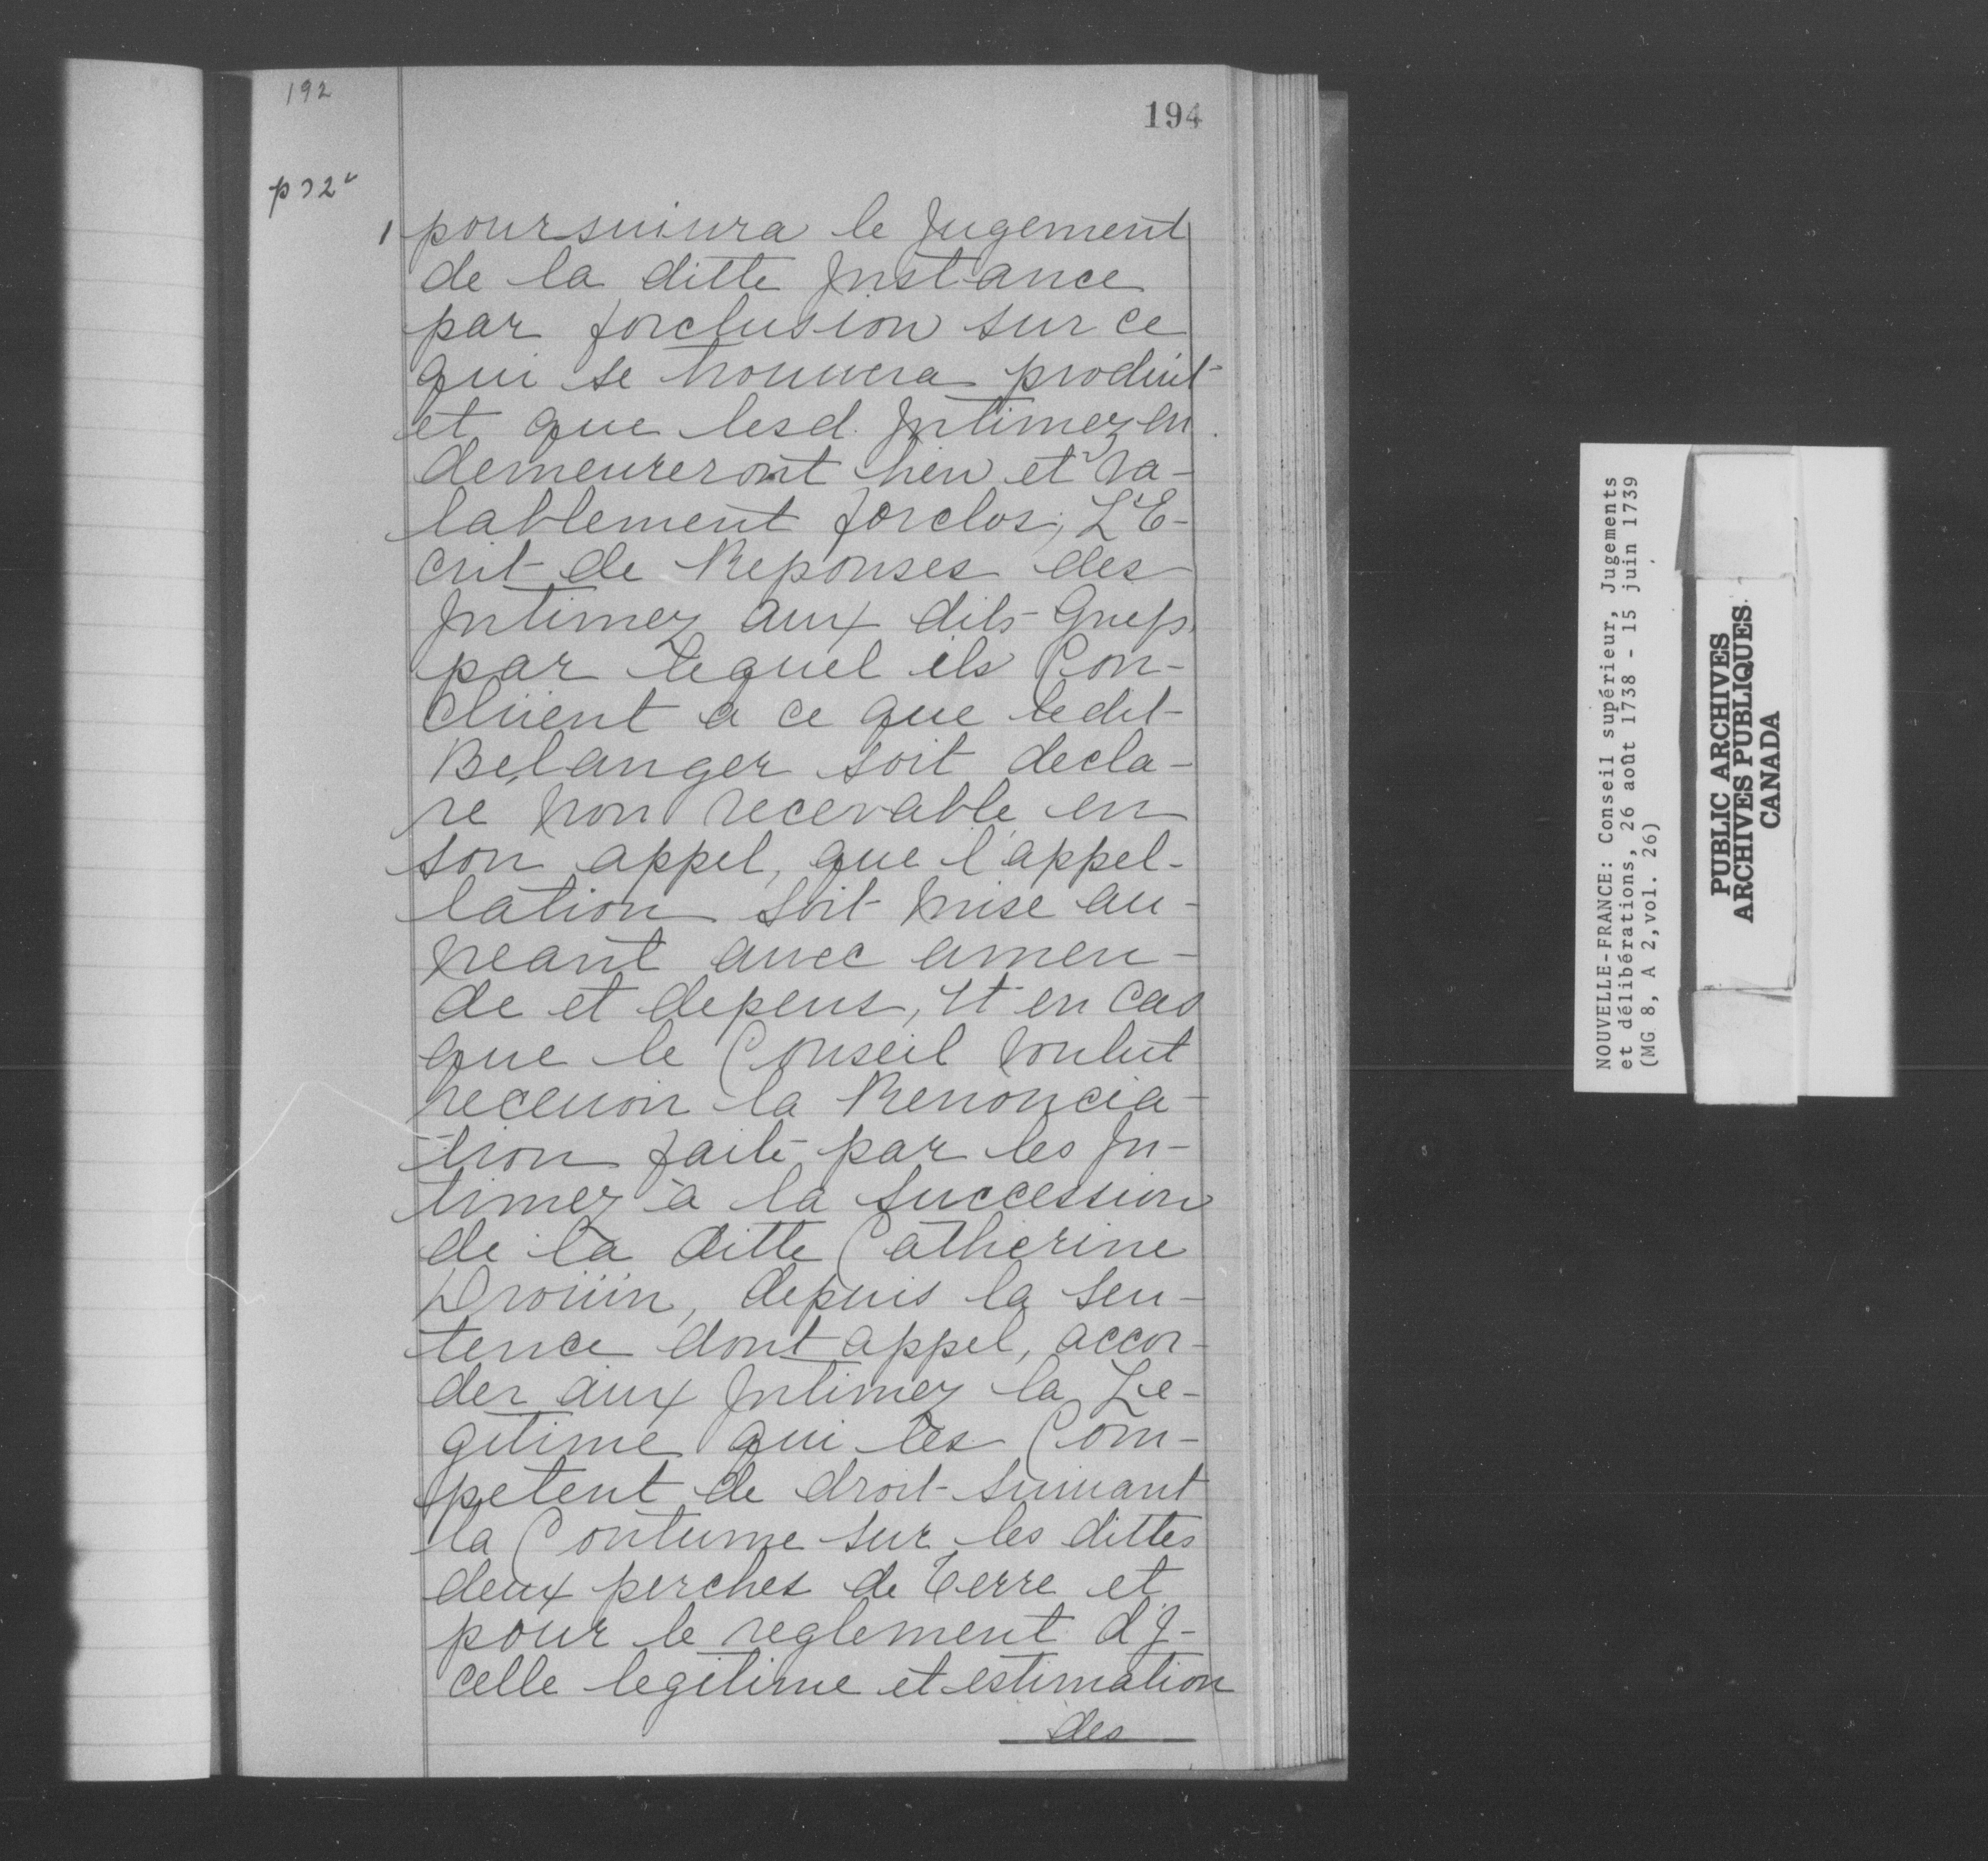 192
194
p 32v
poursuiura le Jugement
de la ditte Jnstance
par forclusion sur ce
qui se trouuera produit
et que lesd. Jntimez en
demeureront bien et va-
lablement forclos; L'E-
crit de Reponses des
Jntimez aux dits Griefs
par lequel ils Con-
cluent a ce que ledit
Belanger soit decla-
ré non recevable en
son appel, que l'appel-
lation soit mise au
neant auec amen-
de et depens, et en cas
que le Conseil voulut
receuoir la Renoncia-
tion faite par les Jn-
timez à la succession
de la ditte Catherine
Drouin, depuis la sen-
tence dont appel, accor-
der aux Jntimez la Le-
gitime qui les Com-
petent de droit suiuant
la Coutume sur les dittes
deux perches de terre et
pour le reglement d'J-
celle legitime et estimation
des
NOUVELLE-FRANCE: Conseil supérieur, Jugements
et délibérations, 26 août 1738 - 15 juin 1739
(MG 8, A 2,vol. 26)
PUBLIC ARCHIVES
ARCHIVES PUBLIQUES
CANADA